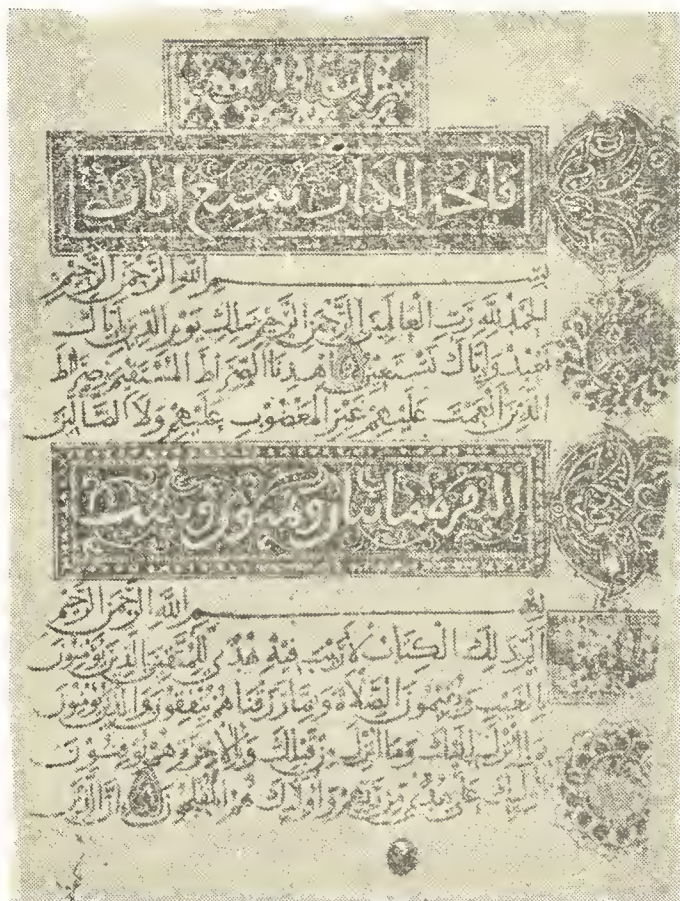 فاتحة سبع ايات
بسم الله الرحمن الرحيم
الحمد لله رب العالمين الرحمن الرحيم ملك يوم الدين اياك
نعبد واياك نستعين اهدنا الصراط المستقيم صراط
الذين انعمت عليهم غير المغضوب عليهم ولا الضالين
البقرة مائتان وست
بسم الله الرحمن الرحيم
الم ذلك الكتاب لا ريب فيه هدى للمتقين الذين يؤمنون
بالغيب ويقيمون الصلاة ومما رزقناهم ينفقون والذين يؤمنون
بما انزل اليك وما انزل من قبلك وبالاخرة هم يوقنون
اولئك على هدى من ربهم واولئك هم المفلحون ان الذين